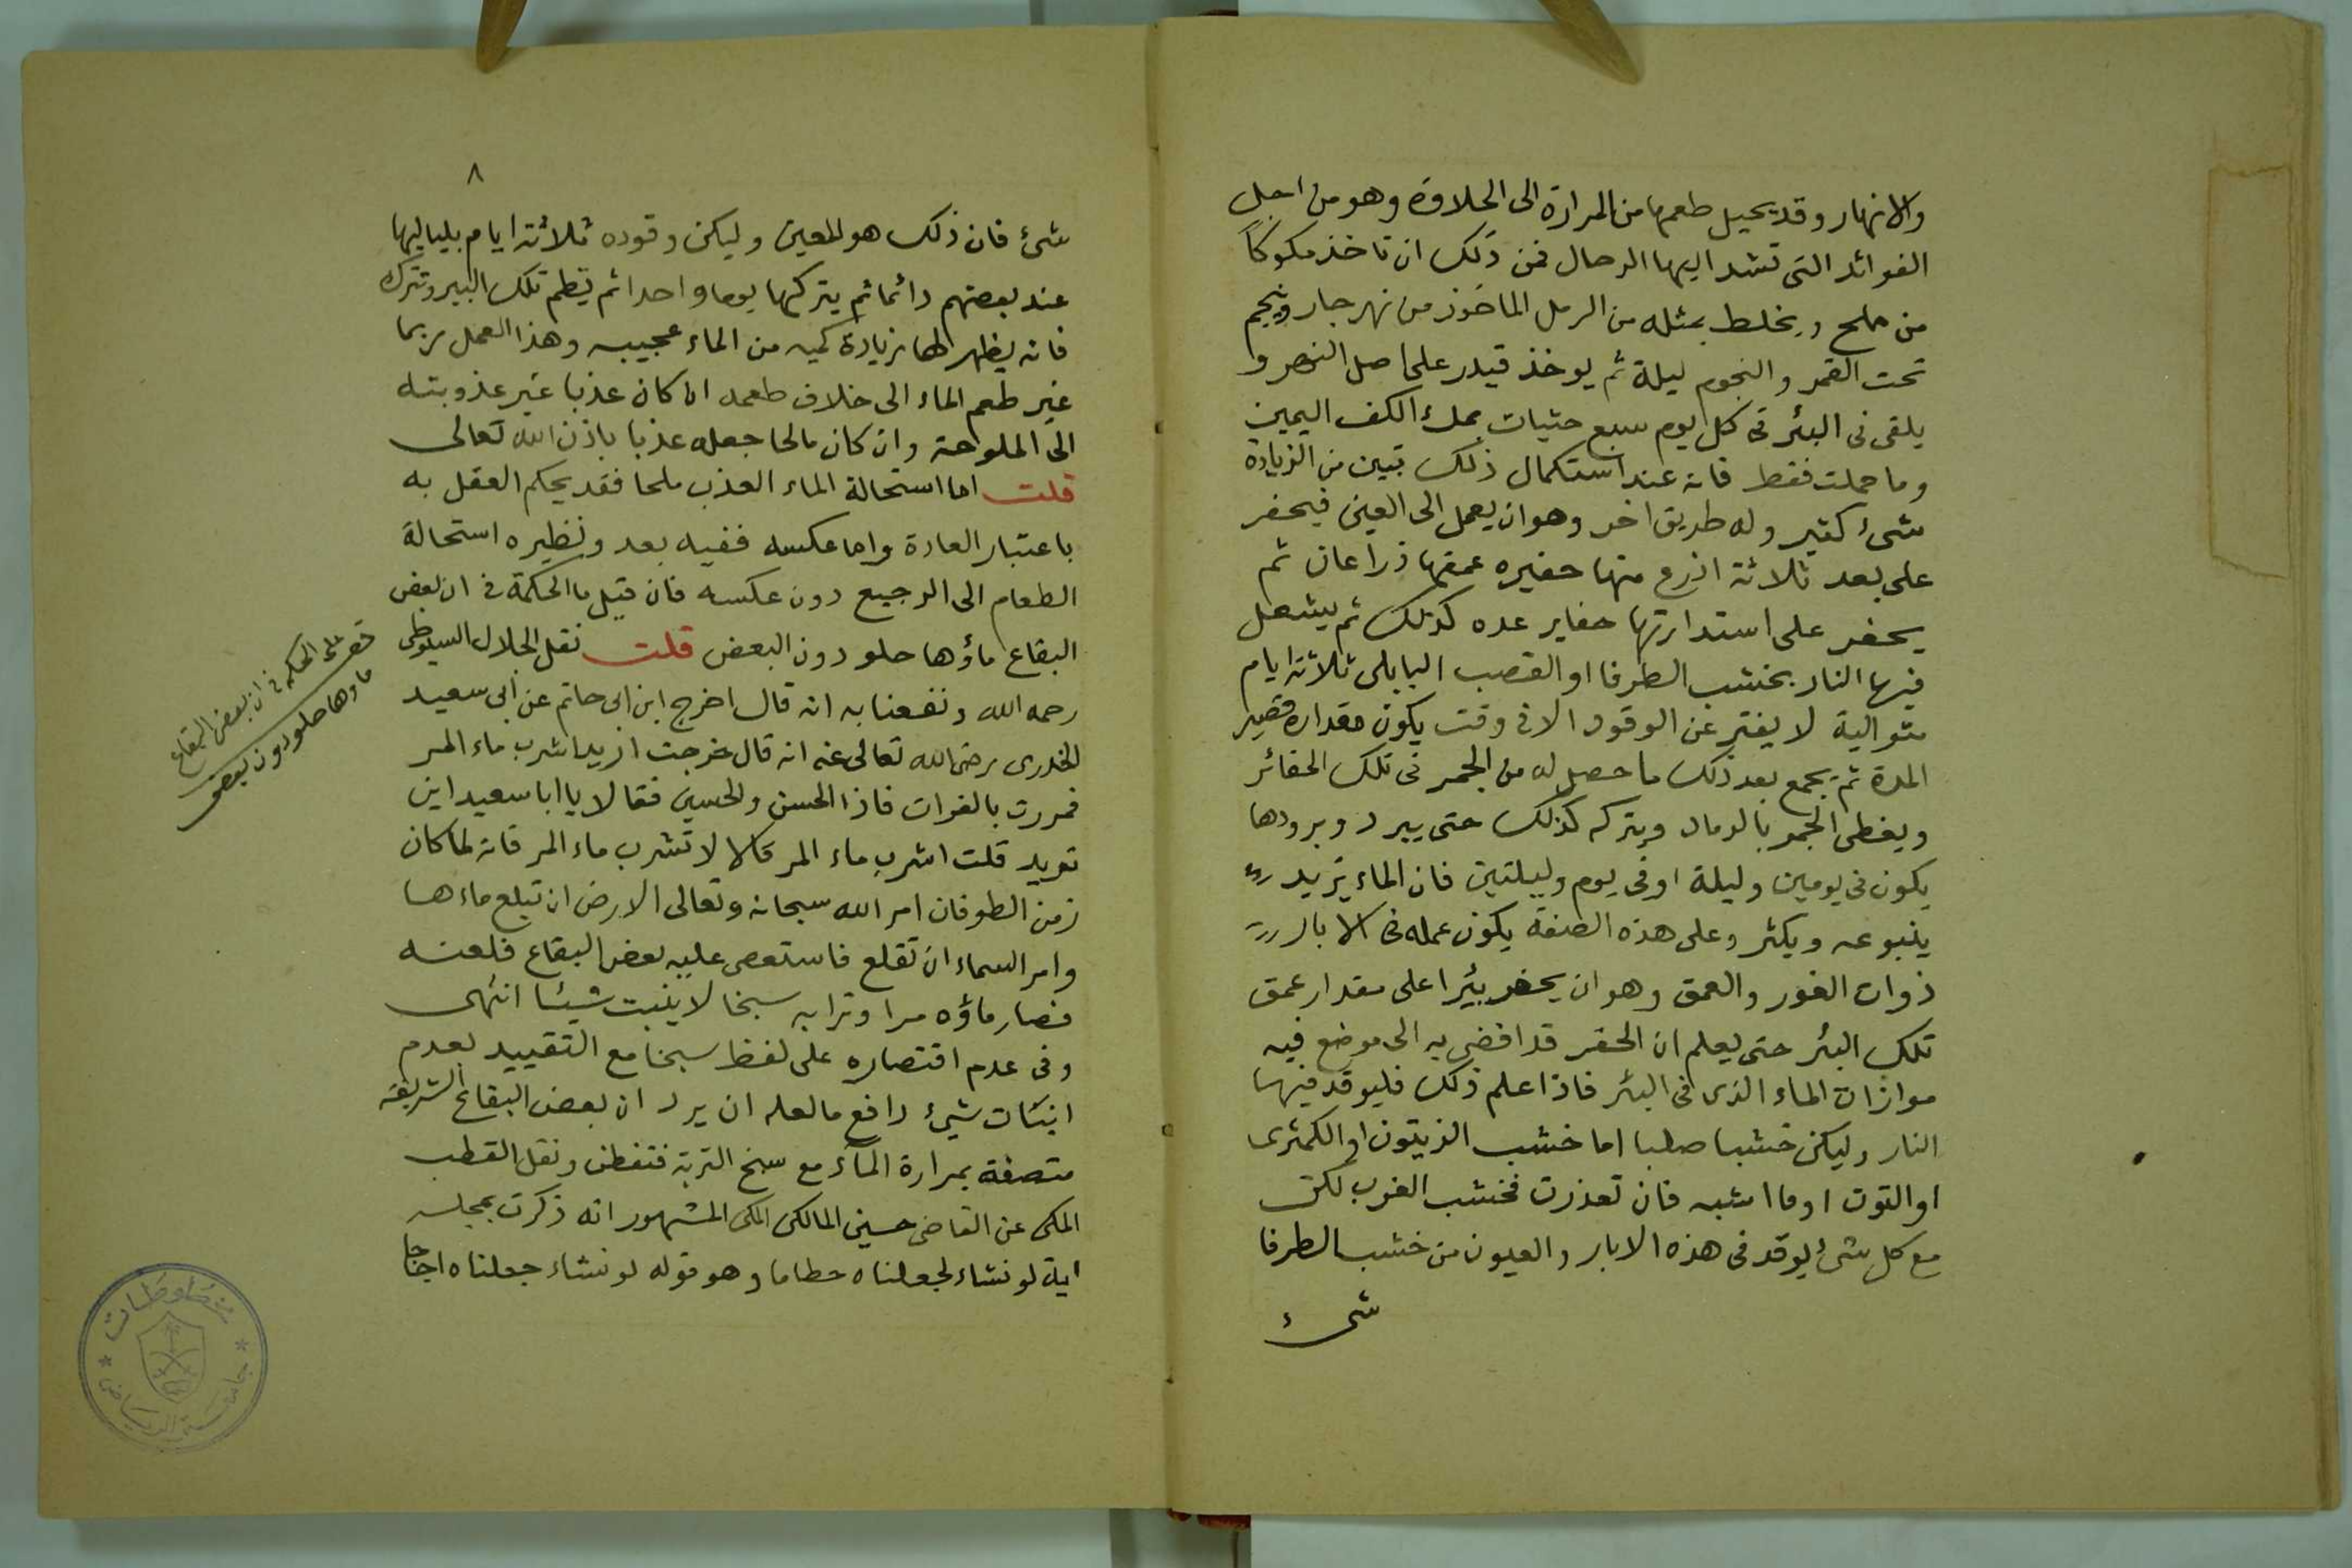 والانهار وقد يحيل طعمها من المرارة الى الحلاوة وهو من اجل
الفوائد التى تشد اليها الرحال فمن ذلك ان تاخذ مكوكا
من ملح ويخلط بمثله من الرمل الماخوذ من نهر جار وينجم
تحت القمر والنجوم ليلة ثم يوخذ قيدر على اصل النهر و
يلقى فى البئر فى كل يوم سبع حثيات بملء الكف اليمين
وما حملت فقط فانه عند استكمال ذلك تبين من الزيادة
شىء كثير وله طريق اخر وهو ان يعمل الى العين فيحفر
على بعد ثلاثة اذرع منها حفيره عمقها ذراعان ثم
يحفر على استدارتها حفاير عده كذلك ثم يشعل
فيها النار بخشب الطرفا او القصب البابلى ثلاثة ايام
متوالية لا يفتر عن الوقود الا فى وقت يكون مقداره قصير
المدة ثم يجمع بعد ذلك ما حصل له من الجمر فى تلك الحفائر
ويغطى الجمر بالرماد ويتركه كذلك حتى يبرد وبرودها
يكون فى يومين وليلة او فى يوم وليلتين فان الماء يزيد
ينبوعه ويكثر وعلى هذه الصفة يكون عمله فى الابار
ذوات الغور والعمق وهو ان يحفر بئرا على مقدار عمق
تلك البئر حتى يعلم ان الحفر قد افضى به الى موضع فيه
موازات الماء الذى فى البئر فاذا علم ذلك فليوقد فيها
النار وليكن خشبا صلبا اما خشب الزيتون او الكمثرى
او التوت او ما اشبه فان تعذرت فخشب الغرب لكن
مع كل شىء يوقد فى هذه الابار والعيون من خشب الطرفا
شىء
٨
شىء فان ذلك هو المعين وليكن وقوده ثلاثة ايام بلياليها
عند بعضهم دائما ثم يتركها يوما واحدا ثم يطم تلك البير وتترك
فانه يظهر لها زيادة كميه من الماء عجيبه وهذا العمل ربما
غير طعم الماء الى خلاف طعمه ان كان عذبا غير عذوبته
الى الملوحة وان كان مالحا جعله عذبا باذن الله تعالى
قلت اما استحالة الماء العذب ملحا فقد يحكم العقل به
باعتبار العادة واما عكسه ففيه بعد ونظيره استحالة
الطعام الى الرجيع دون عكسه فان قيل ما الحكمة فى ان بعض
البقاع ماؤها حلو دون البعض قلت نقل الجلال السيوطى
رحمه الله ونفعنا به انه قال اخرج ابن ابى حاتم عن ابى سعيد
الخدرى رضى الله تعالى عنه انه قال خرجت اريد اشرب ماء المر
فمررت بالفرات فاذا الحسن والحسين فقالا يا ابا سعيد اين
تريد قلت اشرب ماء المر قالا لا تشرب ماء المر فانه لما كان
زمن الطوفان امر الله سبحانه وتعالى الارض ان تبلع ماءها
وامر السماء ان تقلع فاستعصى عليه بعض البقاع فلعنه
فصار ماؤه مرا وترابه سبخا لا ينبت شيئا انتهى
وفى عدم اقتصاره على لفظ سبخا مع التقييد لعدم
انبات شىء دافع ما لعله ان يرد ان بعض البقاع الشريفة
متصفة بمرارة الماء مع سبخ التربة فتفطن ونقل القطب
المكى عن القاضى حسين المالكى المكى المشهور انه ذكرت بمجلسه
اية لو نشاء لجعلناه حطاما وهو قوله لو نشاء جعلناه اجاجا
قف على الحكمه فى ان بعض البقاع
ماوها حلو دون بعض
مخطوطات
جامعة الرياض